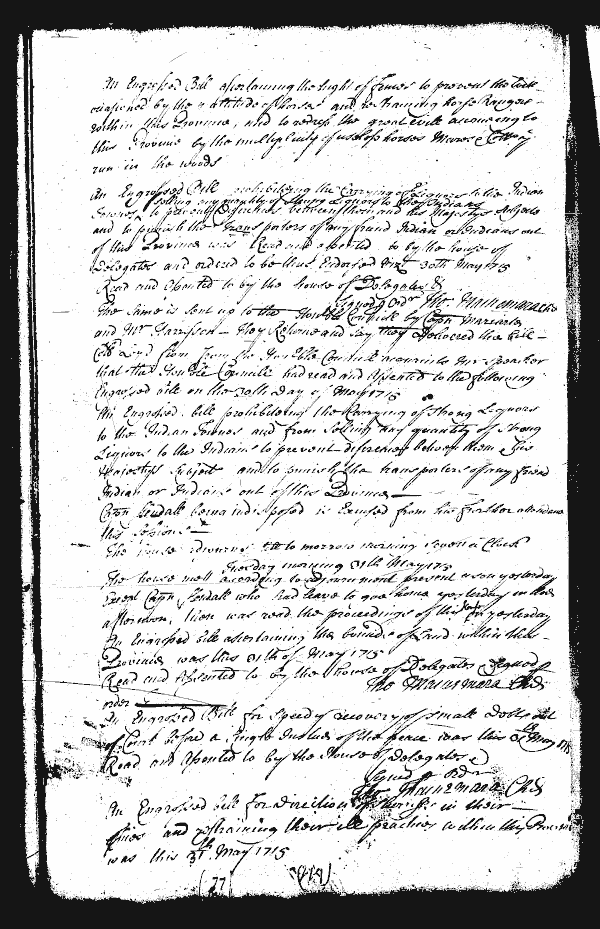 An Engrossed Bill ascertaining the height of fences to prevent the Evil
occasioned by the multitude of horses and restraining horse Rangers
within this Province, and to redress the great Evil accrueing to
this Province by the multiplicity of useless horses Mares & Colts
run in the woods
An Engrossed Bill prohibiting the Carrying of Liquors to the Indian
selling any quantity of strong Liquors to the Indians
Townes to prevent differences between them and his Majestys Subjects
and to punish the Transporters of any friend Indian or Indians out
of this Province was Read and assented to by the house of
Delegates and ordered to be thus Endorsed Viz.t 30th May 1715
Read and assented to by the house of Delegates &
Signed p Order Tho: Macnemara
The Same is sent up to the Honble Councile by
and Mr Harrison They Returne and Say they Delivered the bill
Col Loyd from the Honble Councile
that the Honble Councile had read and assented to the following
Engrossed bill on the 30th Day of May 1715
An Engrossed bill prohibiting the Carrying of Strong Liquors
to the Indian Townes and from Selling any quantity of strong
Liquors to the Indians to prevent differences between them & his
Majestys Subjects and to punish the transporters of any friend
Indian or Indians out of this Province
Capn Kendall being indisposed is Excused from his further attendance
this Session
The house adjourns till to morrow morning Seven a Clock
Tuesday morning 31th May 1715
The house mett according to adjournment present as on yesterday
Except Capn Kendall who had leave to goe home yesterday in the
afternoon, then was read the proceedings of the house on yesterday
An Engrossed bill ascertaining the bounds of Land within this
Province was this 31th of May 1715
Read and Assented to by the house of Delegates Signed
Tho Macnemara Clk
order
An Engrossed Bill for Speedy recovery of small Debts out
of Court before a Single Justice of the peace was this 31th May 1715
Read and Assented to by the house of Delegates &
Signed p Ordr
Tho: Macnemara Clk
An Engrossed bill for direction of Sherriffs in their
offices and restraining their ill practices within this Province
was this 31th May 1715
(77)